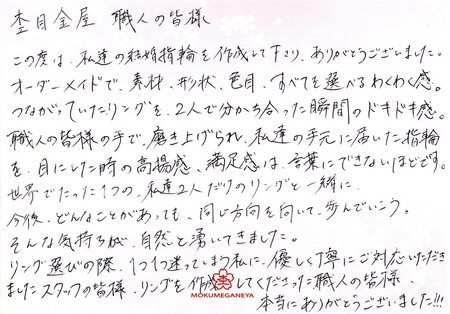 杢目金屋 職人の皆様
この度は、私達の結婚指輪を作成して下さり、ありがとうございました。
オーダーメイドで、素材、形状、色目、すべてを選べるわくわく感。
つながっていたリングを、2人で分かち合った瞬間のドキドキ感。
職人の皆様の手で、磨き上げられ、私達の手元に届いた指輪
を、目にした時の高揚感、満足感は、言葉にできないほどです。
世界でたった1つの、私達2人だけのリングと一緒に、
今後、どんなことがあっても、同じ方向を向いて、歩んでいこう。
そんな気持ちが、自然と湧いてきました。
リング選びの際、1つ1つ迷ってしまう私に、優しく丁寧にご対応いただき
ましたスタッフの皆様、リングを作成してくださった職人の皆様、
本当にありがとうございました!!!
MOKUMEGANEYA